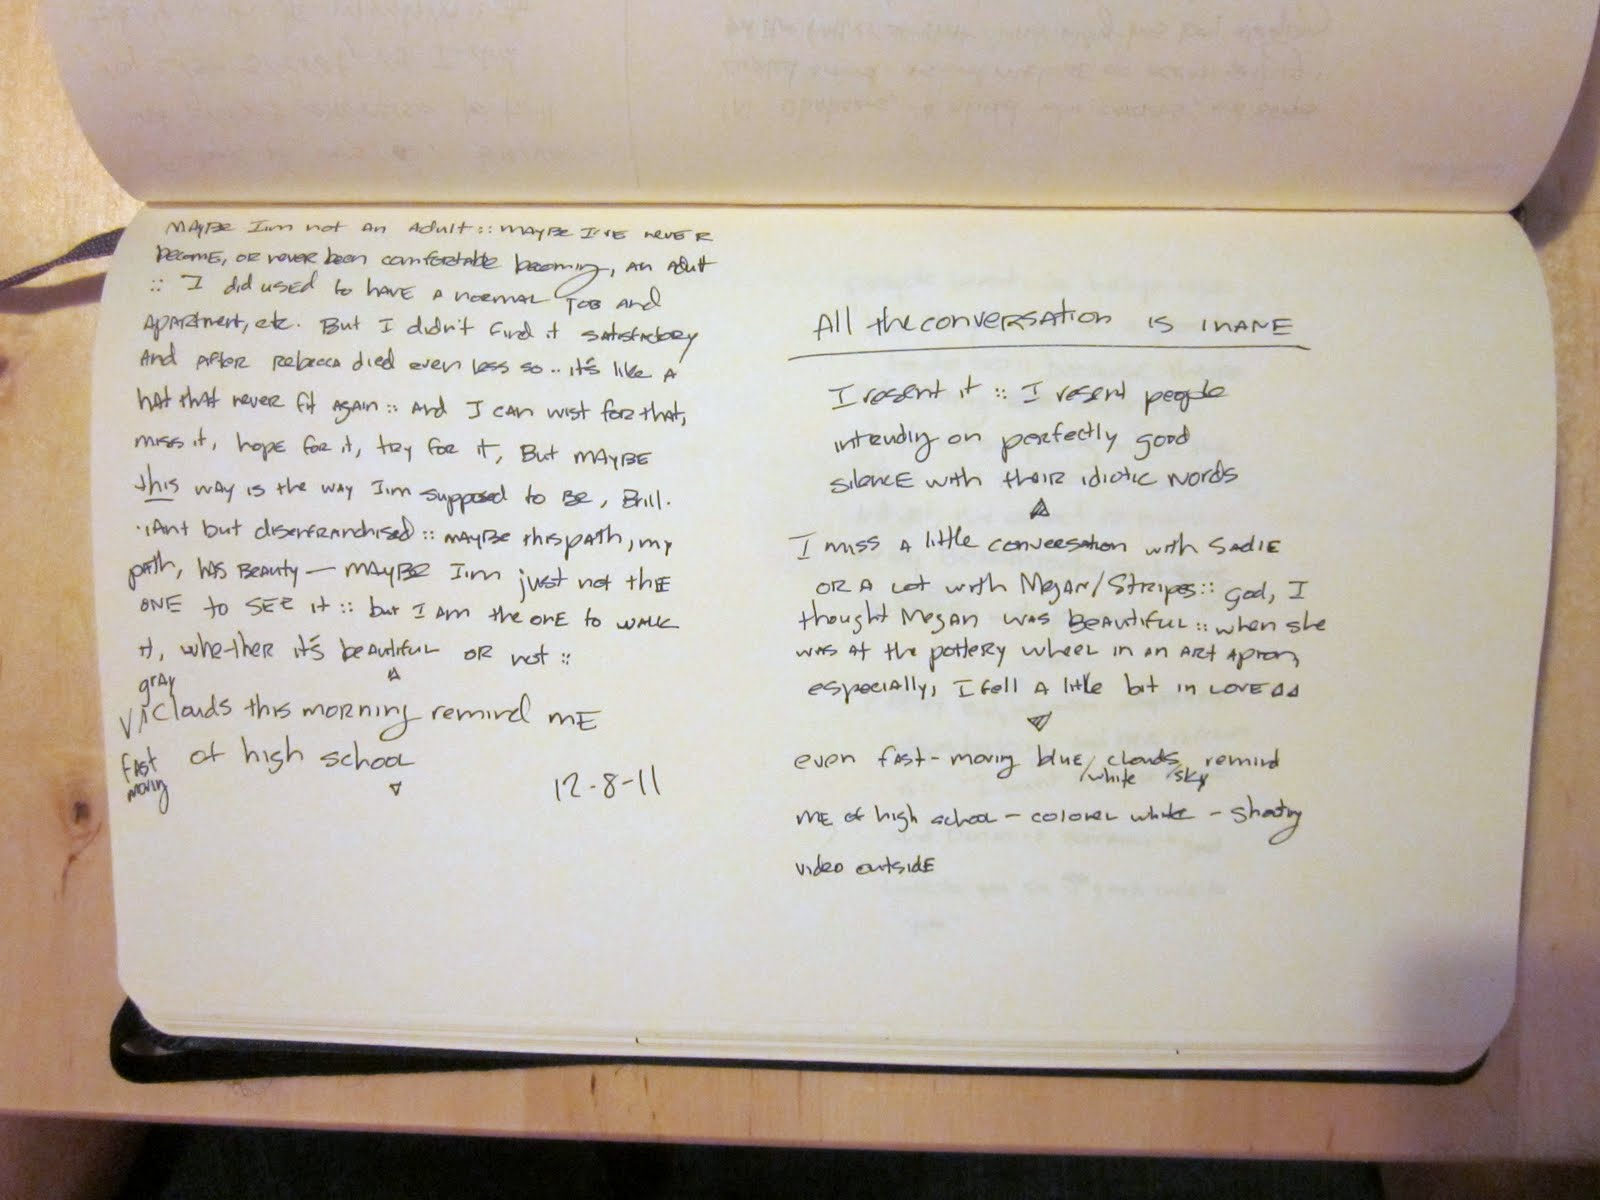 MAYBE I'm not AN Adult :: MAYBE I'VE NEVER
become, OR never been comfortable becoming, AN Adult
:: I did used to HAVE A NORMAL JOB AND
APARTMENT, etc. But I didn't find it satisfactory
And AFTER Rebecca died even less so .. it's like A
hat that never fit AGAIN :: AND I CAN wist FOR that,
miss it, hope for it, try FOR it, But MAYBE
this way is the way I'm supposed to BE, Brill.
·iant but disenfranchised :: MAYBE this path, my
path, HAS BEAUTY — MAYBE I'm just not thE
ONE to SEE it :: but I Am the onE to WALK
it, whether it's beautiful OR not ::
gray
V/^ Clouds this morning remind mE
fast moving
of high school
12-8-11
All the conversation is INANE
I resent it :: I resent people
intruding on perfectly good
silence with their idiotic words
I miss A little conversation with SADIE
OR A LOT with Megan/Stripes :: god, I
thought Megan was BEAUTIFUL :: when she
was At the pottery wheel in an Art Apron,
especially, I fell A little bit in LOVE
even fast-moving blue clouds remind
/white /sky
ME of high school — colonel white — shooting
video outside